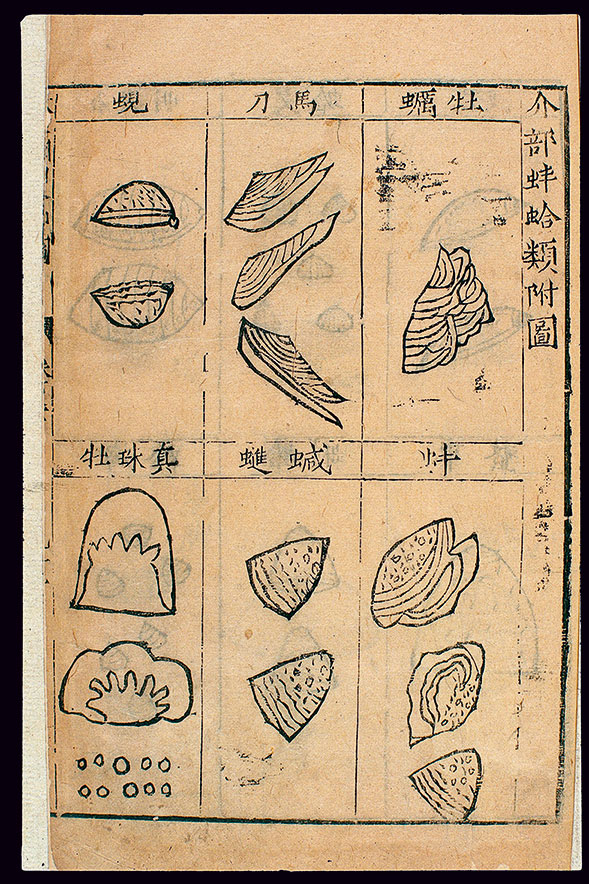 介部蚌蛤類附圖
牡蠣
馬刀
蜆
蚌
蝛䗯
真珠牡